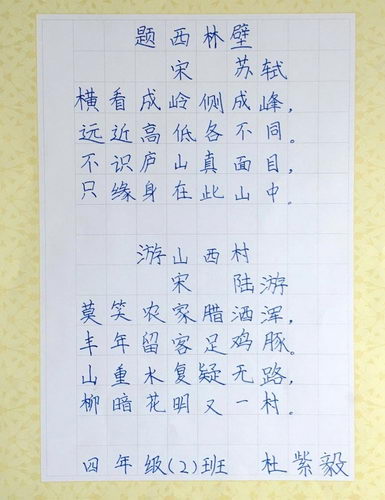 题西林壁
宋 苏轼
横看成岭侧成峰，
远近高低各不同。
不识庐山真面目，
只缘身在此山中。
游山西村
宋 陆游
莫笑农家腊酒浑，
丰年留客足鸡豚。
山重水复疑无路，
柳暗花明又一村。
四年级(2)班 杜紫毅